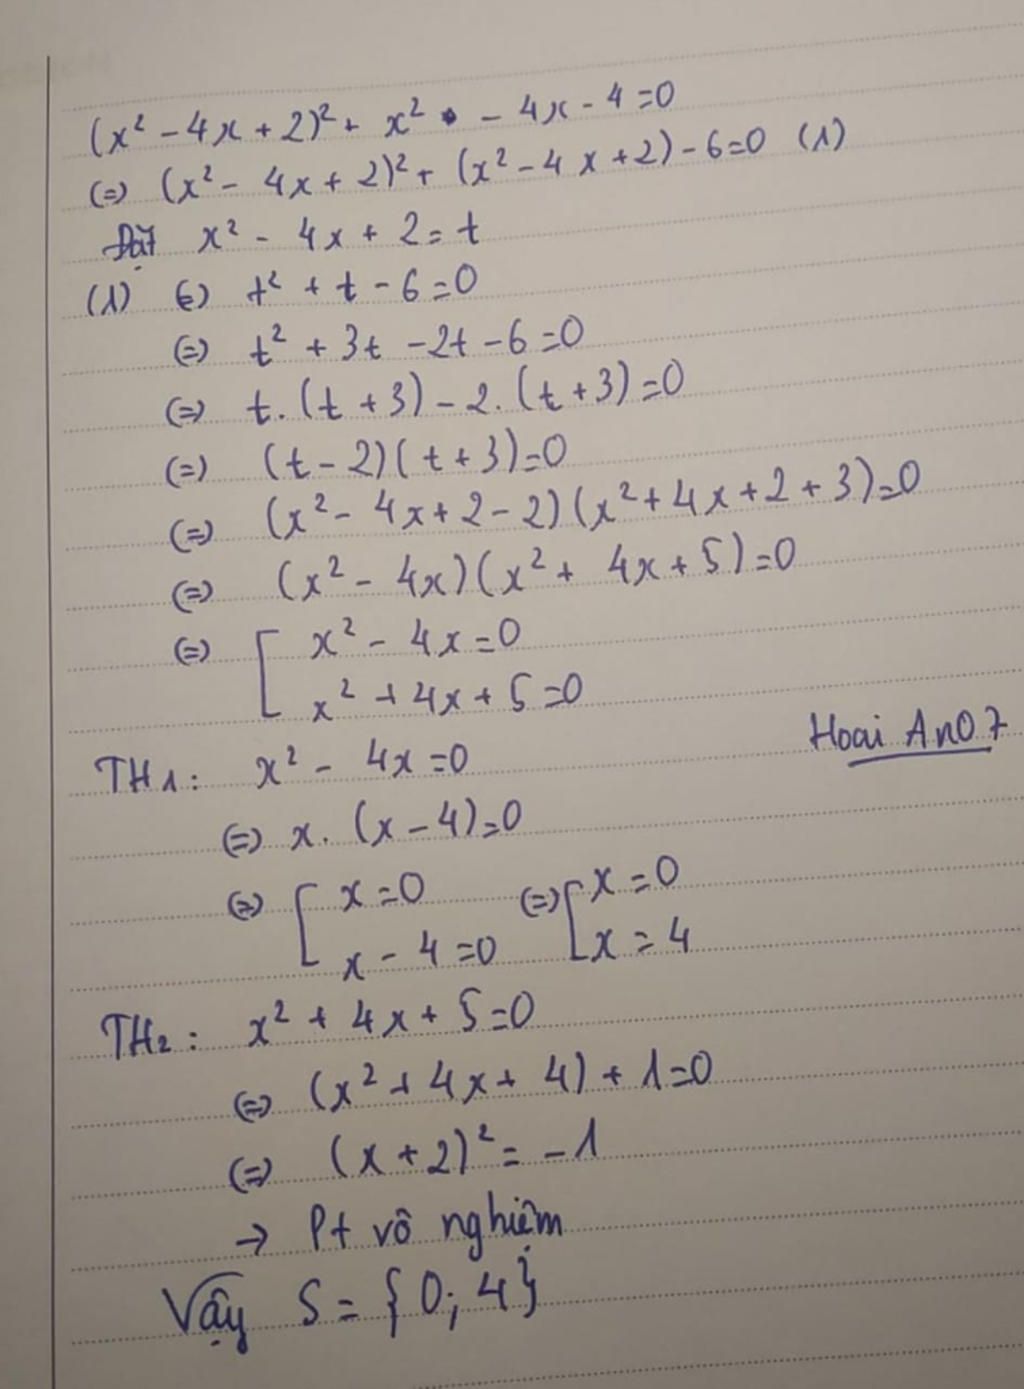 (x² - 4x + 2)² + x² - 4x - 4 = 0
(=) (x² - 4x + 2)² + (x² - 4x + 2) - 6 = 0 (1)
Đặt x² - 4x + 2 = t
(1) (=) t² + t - 6 = 0
(=) t² + 3t - 2t - 6 = 0
(=) t. (t + 3) - 2. (t + 3) = 0
(=) (t - 2)(t + 3) = 0
(=) (x² - 4x + 2 - 2)(x² + 4x + 2 + 3) = 0
(=) (x² - 4x)(x² + 4x + 5) = 0
(=) [ x² - 4x = 0
x² + 4x + 5 = 0
Hoai An07
TH1: x² - 4x = 0
(=) x. (x - 4) = 0
(=) [ x = 0 (=) [ x = 0
x - 4 = 0 x = 4
TH2: x² + 4x + 5 = 0
(=) (x² + 4x + 4) + 1 = 0
(=) (x + 2)² = -1
→ Pt vô nghiệm
Vậy S = {0; 4}